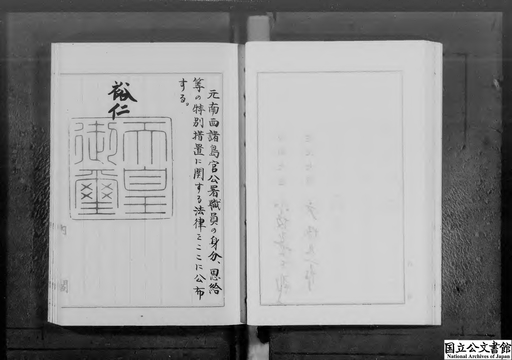 元南西諸島官公署職員の身分、恩給
等の特別措置に関する法律をここに公布
する。
裕仁
天皇
御璽
国立公文書館
National Archives of Japan